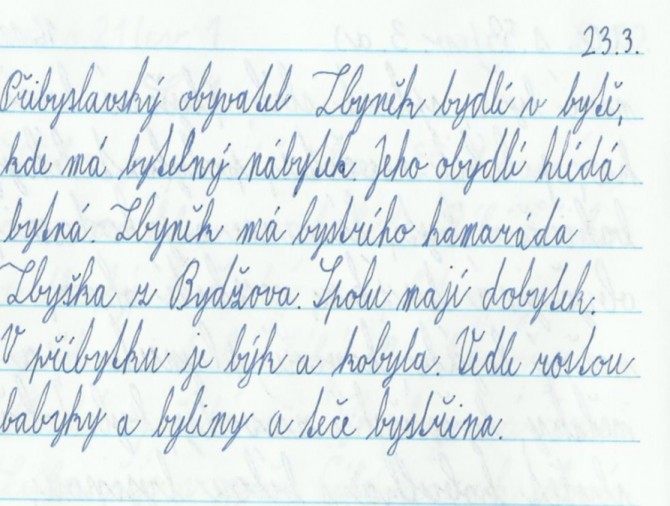 23.3.
Přibyslavský obyvatel Zbyněk bydlí v bytě,
kde má bytelný nábytek. Jeho obydlí hlídá
bytná. Zbyněk má bystrího kamaráda
Zbyška z Bydžova. Spolu mají dobytek.
V příbytku je býk a kobyla. Vedle rostou
babyky a byliny a teče bystřina.